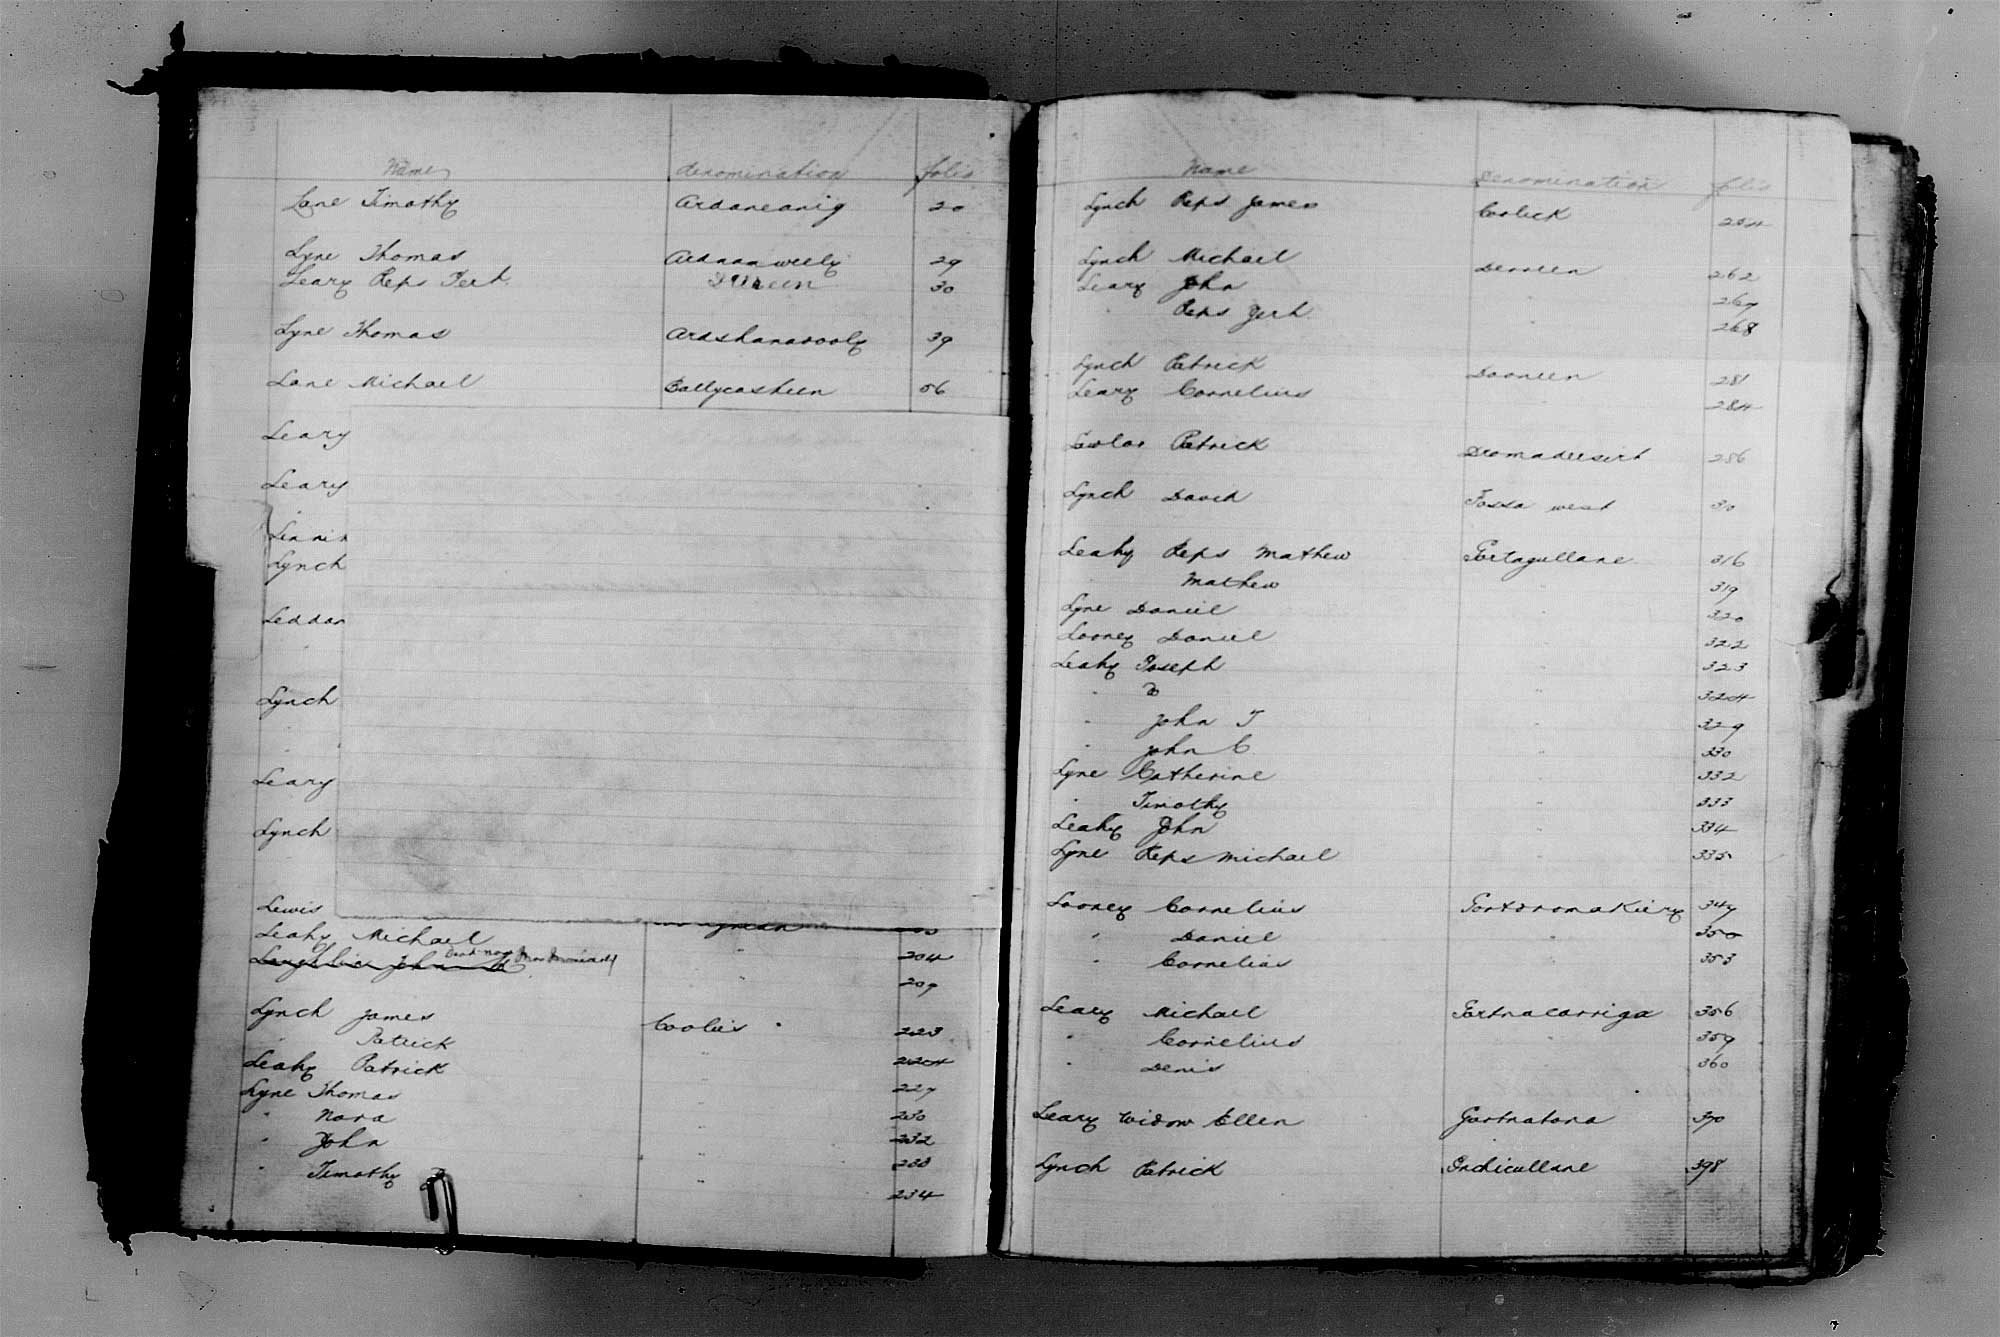 Name denomination folio
Lane Timothy Ardaneanig 20
Lyne Thomas Ardnanweely 29
Leary Reps Jerh. 30
Lyne Thomas Ardshanavooly 39
Lane Michael Ballycasheen 56
Leary
Leary
Lynch
Leddan
"
Lynch
"
"
Leary
Lynch
Lewis
Leahy Michael " 204
Loughlin John 209
Lynch James Coolies 223
" Patrick " 224
Leahy Patrick " 227
Lyne Thomas " 230
" Nora " 232
" John " 233
" Timothy " 234
Name Denomination folio
Lynch Reps James Coolick 254
Lynch Michael Derreen 262
Leary John " 267
" Reps Jerh. " 268
Lynch Patrick Dooneen 281
Leary Cornelius " 284
Lawlor Patrick Dromadeesirt 286
Lynch David Fossa west 310
Leahy Reps Mathew Gortagullane 316
" Mathew " 319
Lyne Daniel " 320
Looney Daniel " 322
Leahy Joseph " 323
" Do " 324
" John J " 329
" John C " 330
Lyne Catherine " 332
" Timothy " 333
Leahy John " 334
Lyne Reps Michael " 335
Looney Cornelius Gortdromakiery 347
" Daniel " 350
" Cornelius " 353
Leary Michael Gortnacarriga 356
" Cornelius " 359
" Denis " 360
Leary Widow Ellen Gortnatona 370
Lynch Patrick Inchicullane 398